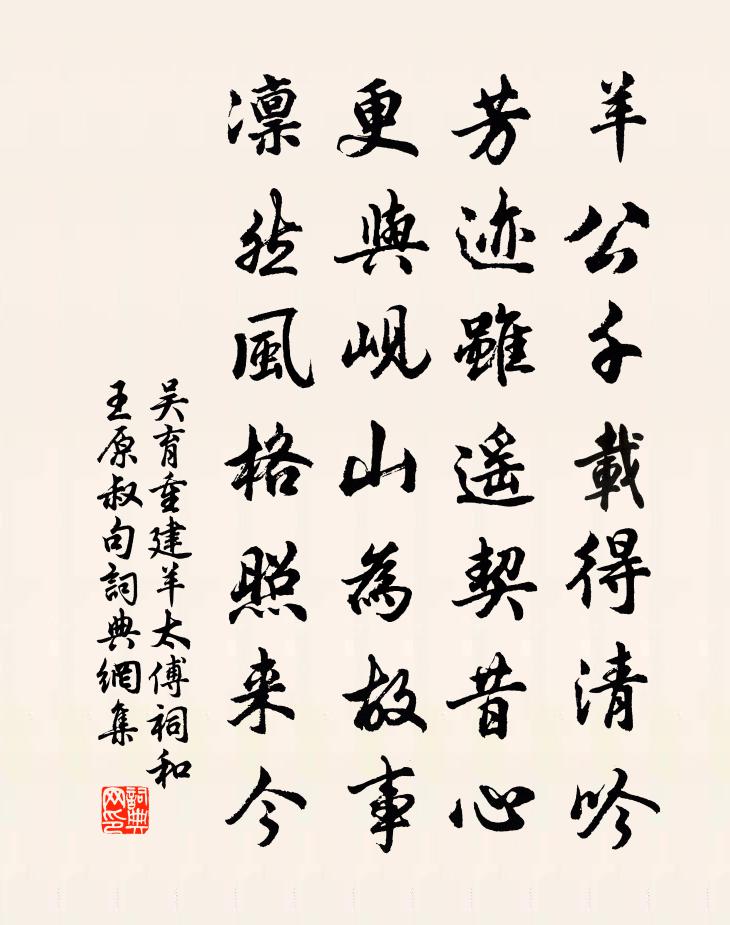 羊公千載得清吟
芳迹雖遥契昔心
更與峴山為故事
凛然風格照来今
吴育重建羊太傅祠和
王原叔句詞典網集
詞典
网印